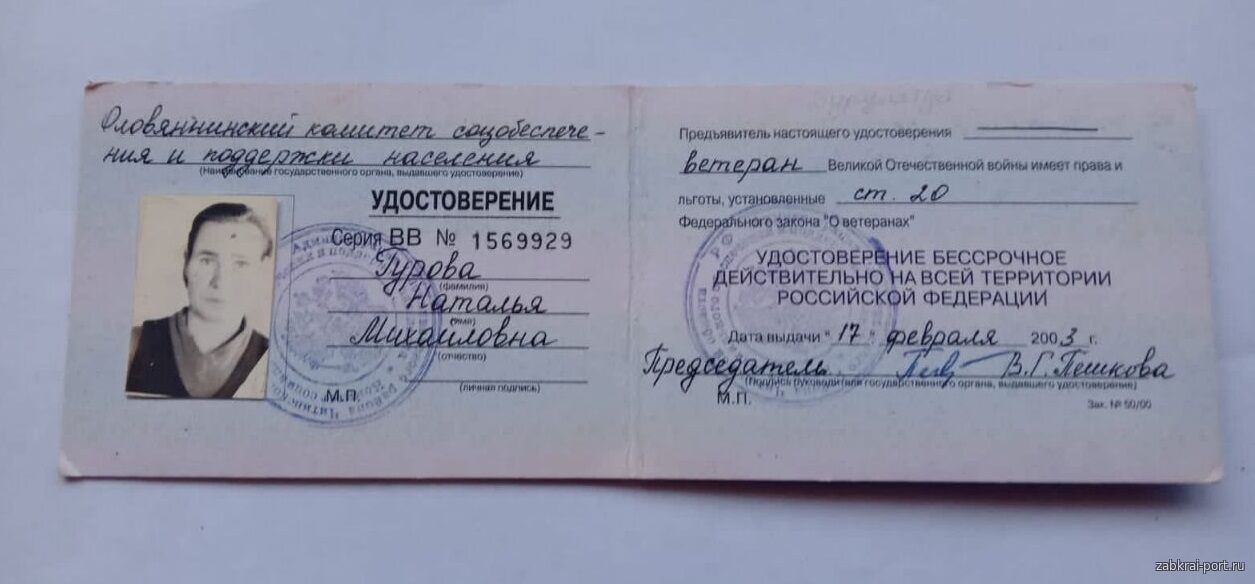 Оловяннинский комитет соцобеспече-
ния и поддержки населения
(Наименование государственного органа, выдавшего удостоверение)
УДОСТОВЕРЕНИЕ
Серия ВВ № 1569929
Гурова
(фамилия)
Наталья
(имя)
Михайловна
(отчество)
(личная подпись)
М.П.
Предъявитель настоящего удостоверения
ветеран Великой Отечественной войны имеет права и
льготы, установленные ст. 20
Федерального закона "О ветеранах"
УДОСТОВЕРЕНИЕ БЕССРОЧНОЕ
ДЕЙСТВИТЕЛЬНО НА ВСЕЙ ТЕРРИТОРИИ
РОССИЙСКОЙ ФЕДЕРАЦИИ
Дата выдачи "17" февраля 2003 г.
Председатель В.Г. Пешкова
(Подпись руководителя государственного органа, выдавшего удостоверение)
М.П.
Зак. № 50/00
zabkrai-port.ru